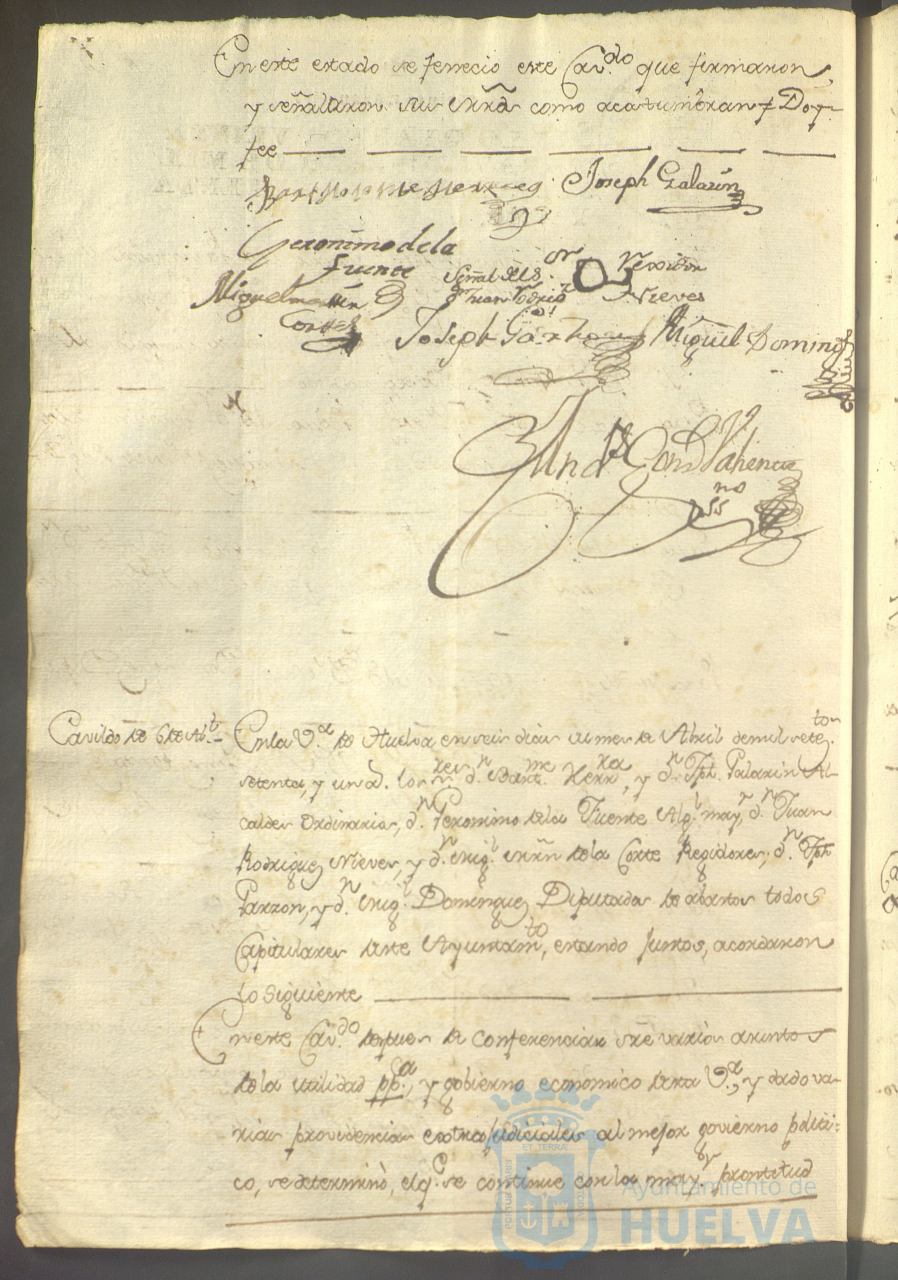 En este estado se fenecio este Cav.do que firmaron,
y señalaron sus mrds como acostumbran, Doy
fee
Joseph Galazin
Geronimo de la
Fuente
Señal del S.or Rexidor
Juan Rodrig.z Nieves
Miguel martin
Cortes
Joseph Garzon Miguel Doming
Valiencia
ss.no
Cavildo de 6 de Ab.l
En la V.a de Huelva en seis dias del mes de Abril de mil sete.tos
setenta, y uno d. los ss.res d.n Bart.me Herr.ra, y d.n Jph. Galazin Al-
caldes Ordinarios, d.n Geronimo de la Fuente Alg.l may.r d.n Juan
Rodriguez Nieves, y d.n Mig.l Mrn de la Corte Regidores, d.n Jph
Garzon, y d.n Mig.l Dominguez Diputados de abastos todos
Capitulares deste Ayuntam.to, estando juntos, acordaron
lo siguiente
En este Cav.do despues de conferenciar sre varios asuntos
de la utilidad pp.ca, y gobierno economico desta V.a, y dado va-
rias providencias extrajudiciales al mejor govierno politi-
co, se determinò, el q.e se continue con la may.r prontitud
PORTUS MARIS
ET TERRAE
CUSTODIA
Ayuntamiento de
HUELVA